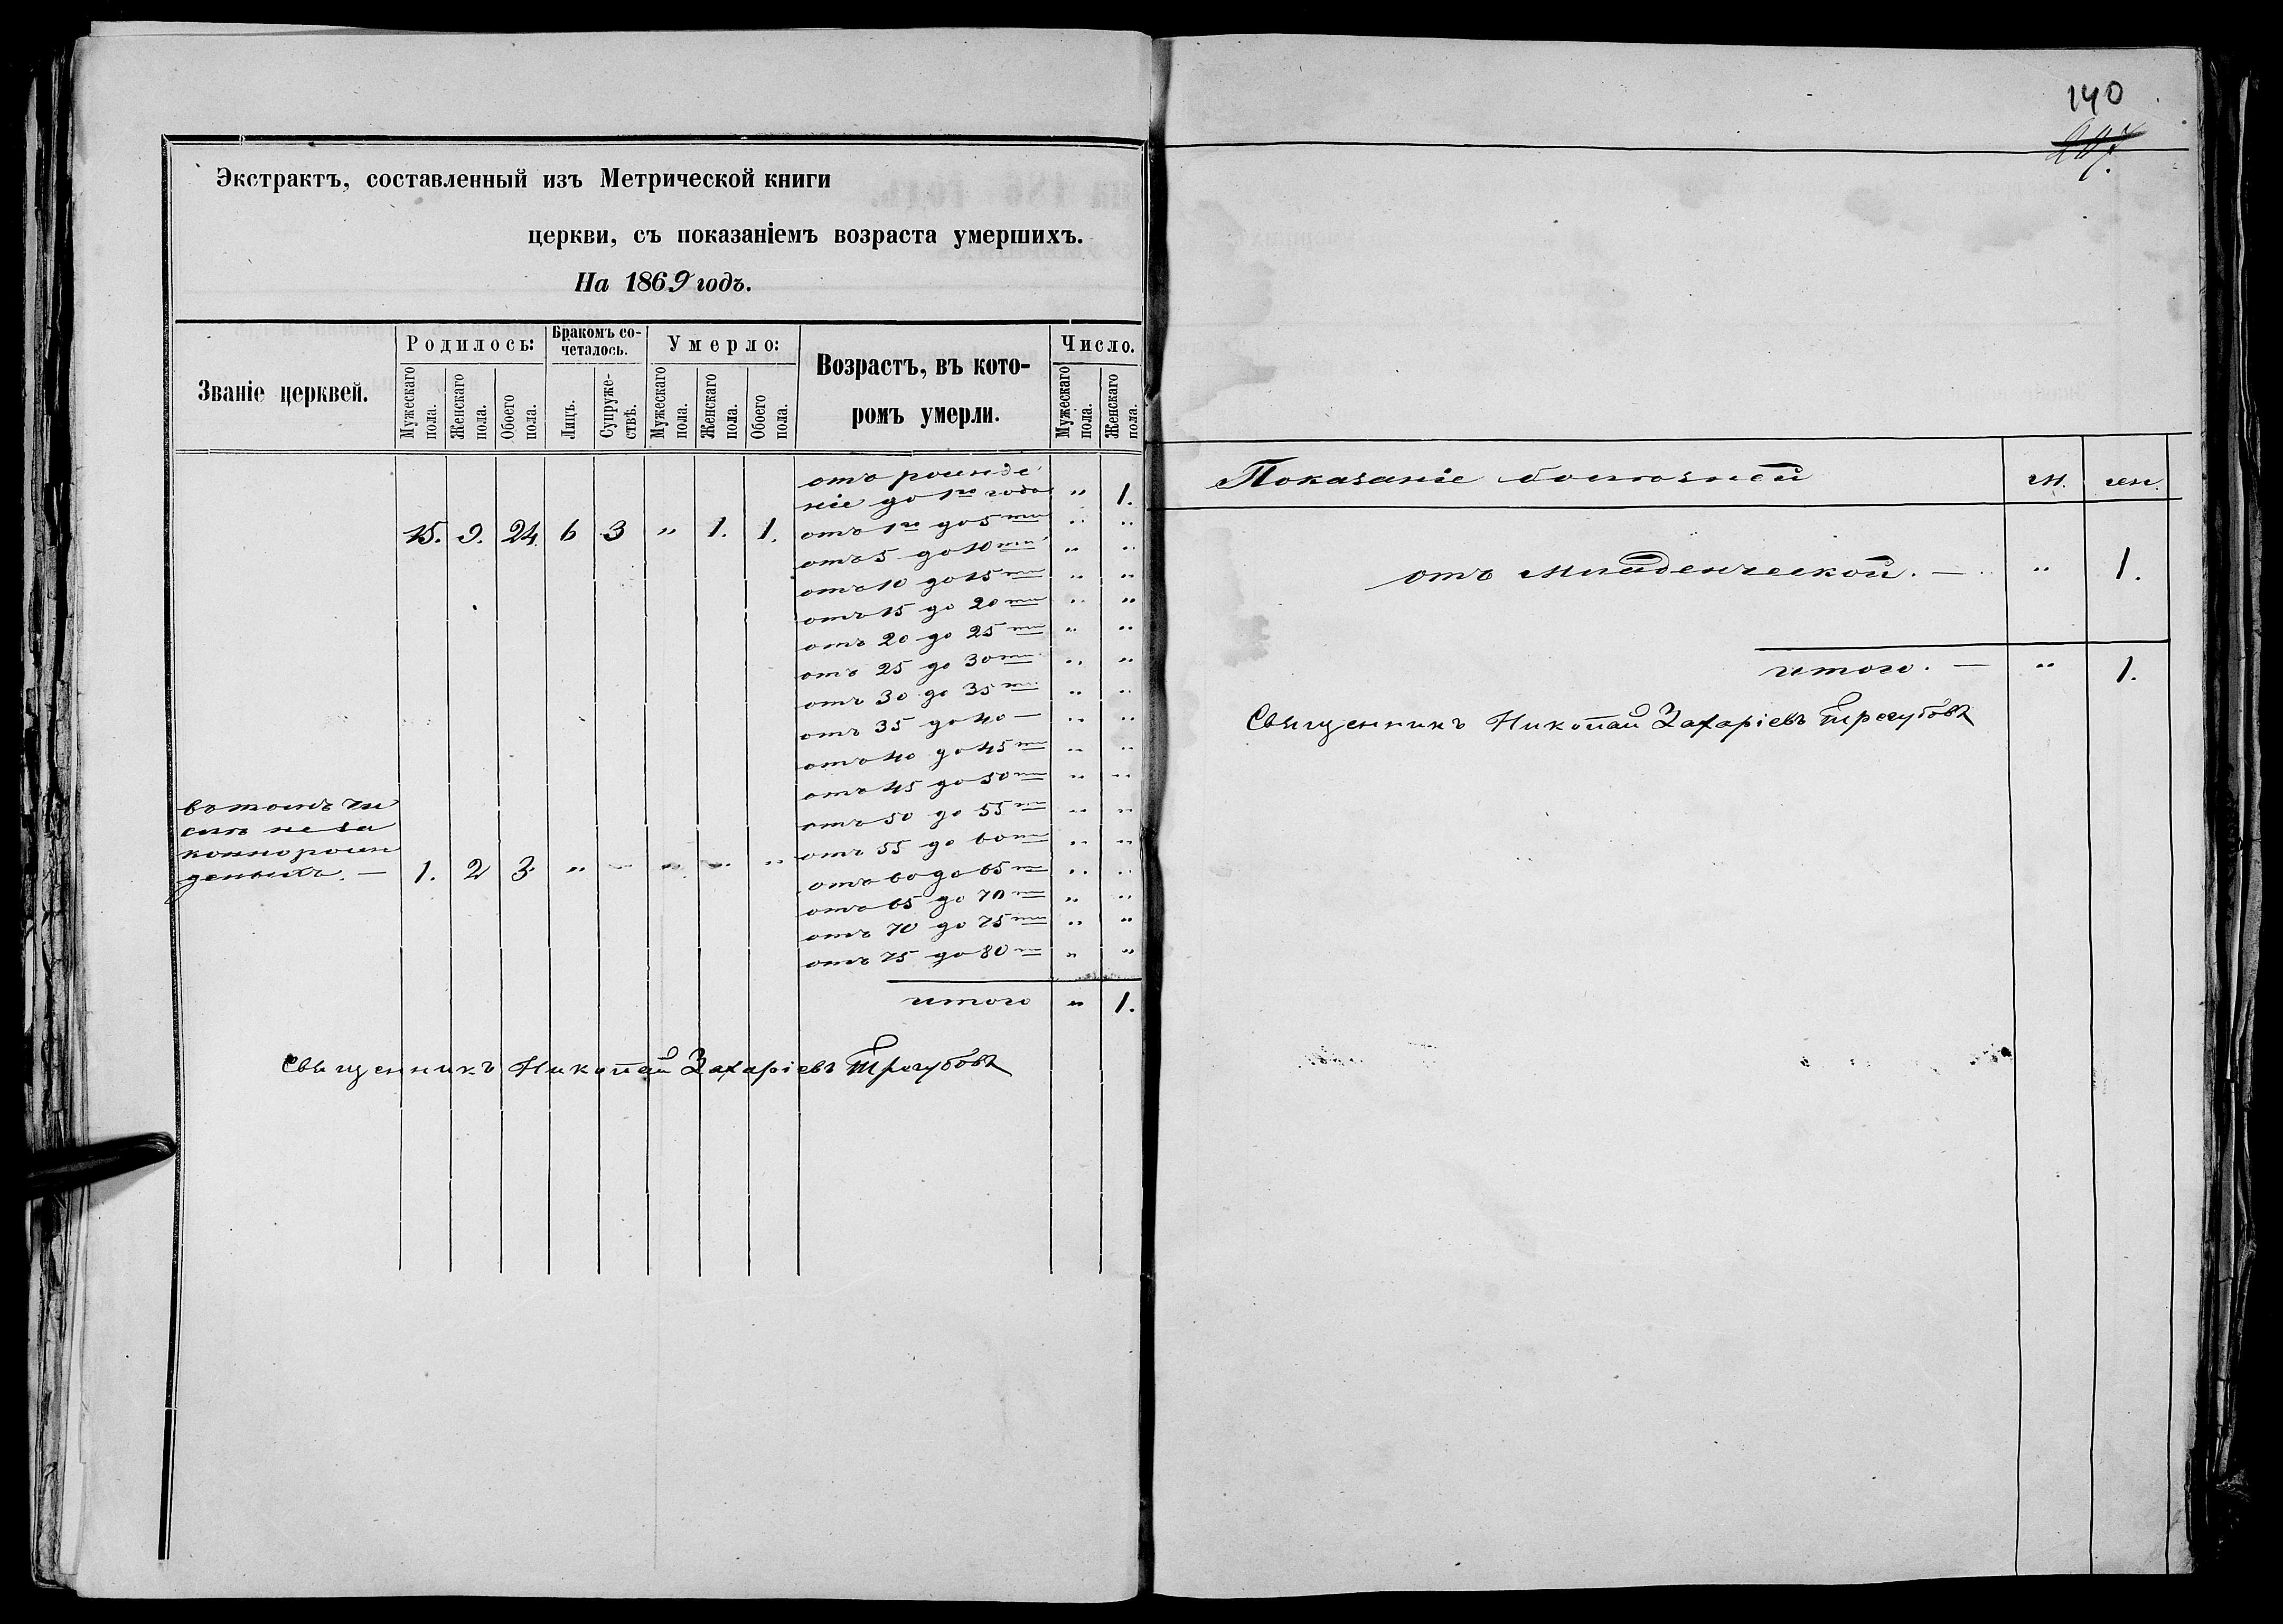 Экстрактъ, составленный изъ Метрической книги
церкви, съ показаніемъ возраста умершихъ.
На 1869 годъ.
Званіе церквей.
Родилось:
Бракомъ со-
четалось.
Умерло:
Возрастъ, въ кото-
ромъ умерли.
Число.
Мужескаго пола.
Женскаго пола.
Обоего пола.
Лицъ.
Супруже-
ствъ.
Мужескаго пола.
Женскаго пола.
Обоего пола.
Мужескаго пола.
Женскаго пола.
отъ рожде
нія до 1го года " 1.
15. 9. 24. 6 3 " 1. 1. отъ 1го до 5ти " "
отъ 5 до 10ти " "
отъ 10 до 15ти " "
отъ 15 до 20ти " "
отъ 20 до 25ти " "
отъ 25 до 30ти " "
отъ 30 до 35ти " "
отъ 35 до 40 — " "
отъ 40 до 45ти " "
отъ 45 до 50ти " "
въ томъ чи
слѣ неза
коннорож
денныхъ. — 1. 2 3 " " " " "
отъ 50 до 55ти " "
отъ 55 до 60ти " "
отъ 60 до 65ти " "
отъ 65 до 70ти " "
отъ 70 до 75ти " "
отъ 75 до 80ти " "
итого " 1.
Священникъ Николай Захаріевъ Трегубовъ
140
Показаніе болѣзней м. жен.
отъ младенческой. — " 1.
итого. — " 1.
Священникъ Николай Захаріевъ Трегубовъ